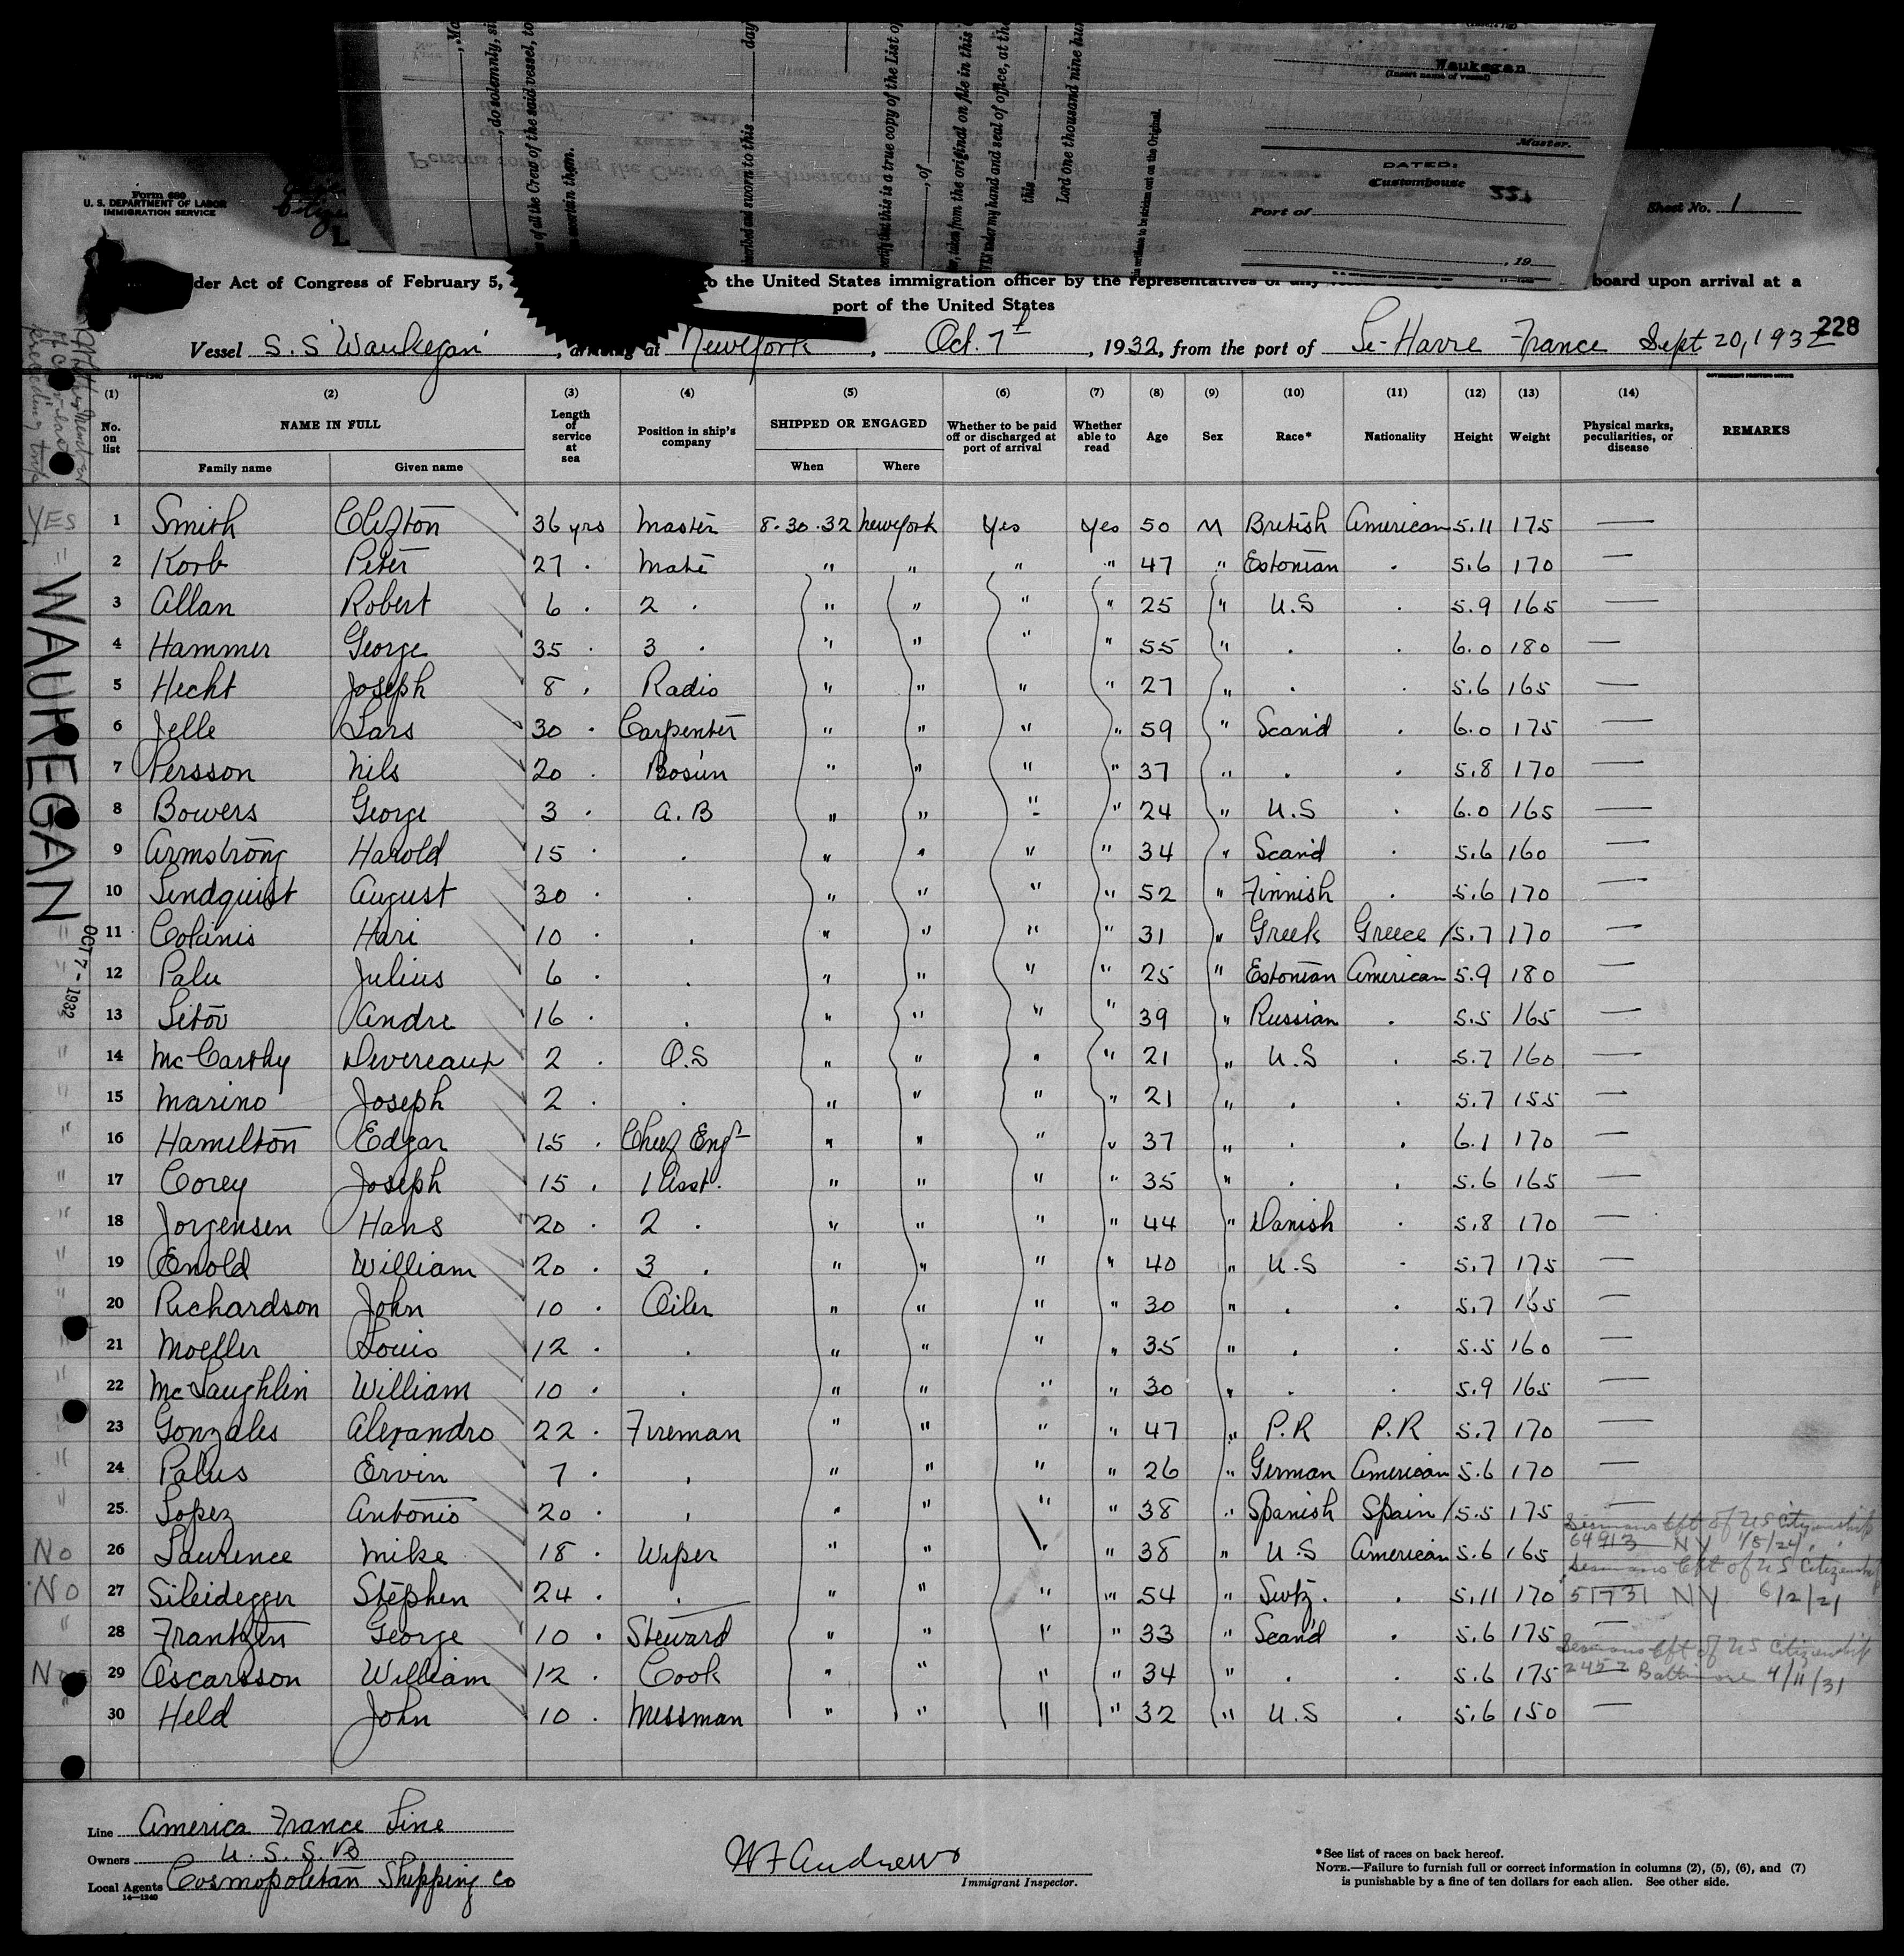 Waukegan
(Insert name of vessel)
Master.
DATED:
Customhouse
Port of
, 19
, do solemnly, si
of all the Crew of the said vessel, to
ascertain them.
day
certify that this is a true copy of the List of
, of
taken from the original on file in this
under my hand and seal of office, at the
this
Lord one thousand nine hu
U. S. DEPARTMENT OF LABOR
IMMIGRATION SERVICE
Sheet No. 1
der Act of Congress of February 5,
o the United States immigration officer by the representatives of any
board upon arrival at a
port of the United States
228
Vessel S.S "Waukegan", arriving at New York, Oct. 7th, 1932, from the port of Le-Havre France Sept 20, 1932
(1) (2) (3) (4) (5) (6) (7) (8) (9) (10) (11) (12) (13) (14)
No. on list NAME IN FULL Length of service at sea Position in ship's company SHIPPED OR ENGAGED Whether to be paid off or discharged at port of arrival Whether able to read Age Sex Race* Nationality Height Weight Physical marks, peculiarities, or disease REMARKS
Family name Given name When Where
YES 1 Smith Clifton 36 yrs Master 8.30.32 New York Yes Yes 50 M British American 5.11 175 —
" 2 Korb Peter 27 . Mate " " " " 47 " Estonian . 5.6 170 —
3 Allan Robert 6 . 2 . " " " " 25 " U.S . 5.9 165 —
4 Hammer George 35 . 3 . " " " " 55 " . . 6.0 180 —
5 Hecht Joseph 8 . Radio " " " " 27 " . . 5.6 165 —
6 Jelle Lars 30 . Carpenter " " " " 59 " Scan'd . 6.0 175 —
7 Persson Nils 20 . Bosun " " " " 37 " . . 5.8 170 —
8 Bowers George 3 . A.B " " " " 24 " U.S . 6.0 165 —
9 Armstrong Harold 15 . . " " " " 34 " Scan'd . 5.6 160 —
10 Lindquist August 30 . . " " " " 52 " Finnish . 5.6 170 —
" 11 Hari 10 . . " " " " 31 " Greek Greece / 5.7 170 —
" 12 Palu Julius 6 . . " " " " 25 " Estonian American 5.9 180 —
13 Sitov Andre 16 . . " " " " 39 " Russian . 5.5 165 —
" 14 McCarthy Devereaux 2 . O.S " " " " 21 " U.S . 5.7 160 —
" 15 Marino Joseph 2 . . " " " " 21 " . . 5.7 155 —
" 16 Hamilton Edgar 15 . Chief Engr " " " " 37 " . . 6.1 170 —
" 17 Corey Joseph 15 . 1 Asst. " " " " 35 " . . 5.6 165 —
" 18 Jorgensen Hans 20 . 2 . " " " " 44 " Danish . 5.8 170 —
" 19 Onold William 20 . 3 . " " " " 40 " U.S . 5.7 175 —
" 20 Richardson John 10 . Oiler " " " " 30 " . . 5.7 165 —
" 21 Moeller Louis 12 . . " " " " 35 " . . 5.5 160 —
" 22 McLaughlin William 10 . . " " " " 30 " . . 5.9 165 —
" 23 Gonzales Alexandro 22 . Fireman " " " " 47 " P.R P.R 5.7 170 —
" 24 Palus Ervin 7 . . " " " " 26 " German American 5.6 170 —
" 25 Lopez Antonio 20 . . " " " " 38 " Spanish Spain / 5.5 175 —
Seamans Cft of US Citizenship
No 26 Laurence Mike 18 . Wiper " " " " 38 " U.S American 5.6 165 64913 NY
Seamans Cft of US Citizenship
No 27 Stephen 24 . . " " " " 54 " Switz. . 5.11 170 51731 NY 6/2/21
" 28 Frantzen George 10 . Steward " " " " 33 " Scan'd . 5.6 175 —
Seamans Cft of US Citizenship
No 29 Oscarsson William 12 . Cook " " " " 34 " . . 5.6 175 2452 Baltimore 4/11/31
30 Held John 10 . Messman " " " " 32 " U.S . 5.6 150 —
WAUKEGAN
OCT 7 - 1932
Line America France Line
Owners U. S. S. B
Local Agents Cosmopolitan Shipping Co
14—1240
W F Andrews
Immigrant Inspector.
*See list of races on back hereof.
NOTE.—Failure to furnish full or correct information in columns (2), (5), (6), and (7)
is punishable by a fine of ten dollars for each alien. See other side.